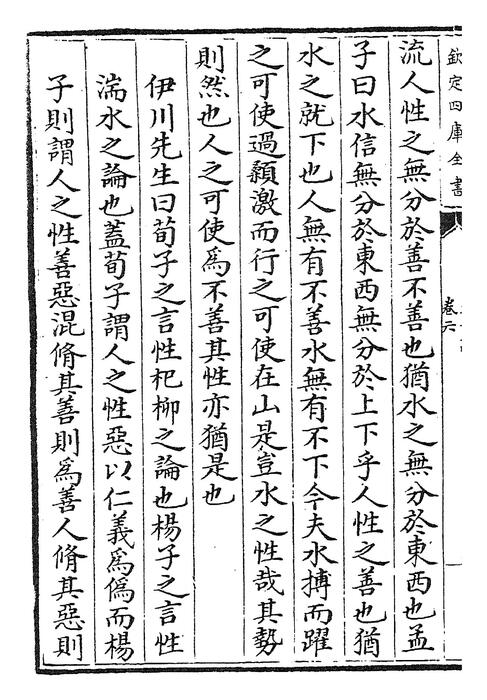 欽定四庫全書
卷六
流人性之無分於善不善也猶水之無分於東西也孟
子曰水信無分於東西無分於上下乎人性之善也猶
水之就下也人無有不善水無有不下今夫水搏而躍
之可使過顙激而行之可使在山是豈水之性哉其勢
則然也人之可使爲不善其性亦猶是也
伊川先生曰荀子之言性杞柳之論也楊子之言性
湍水之論也蓋荀子謂人之性惡以仁義爲僞而楊
子則謂人之性善惡混脩其善則爲善人脩其惡則